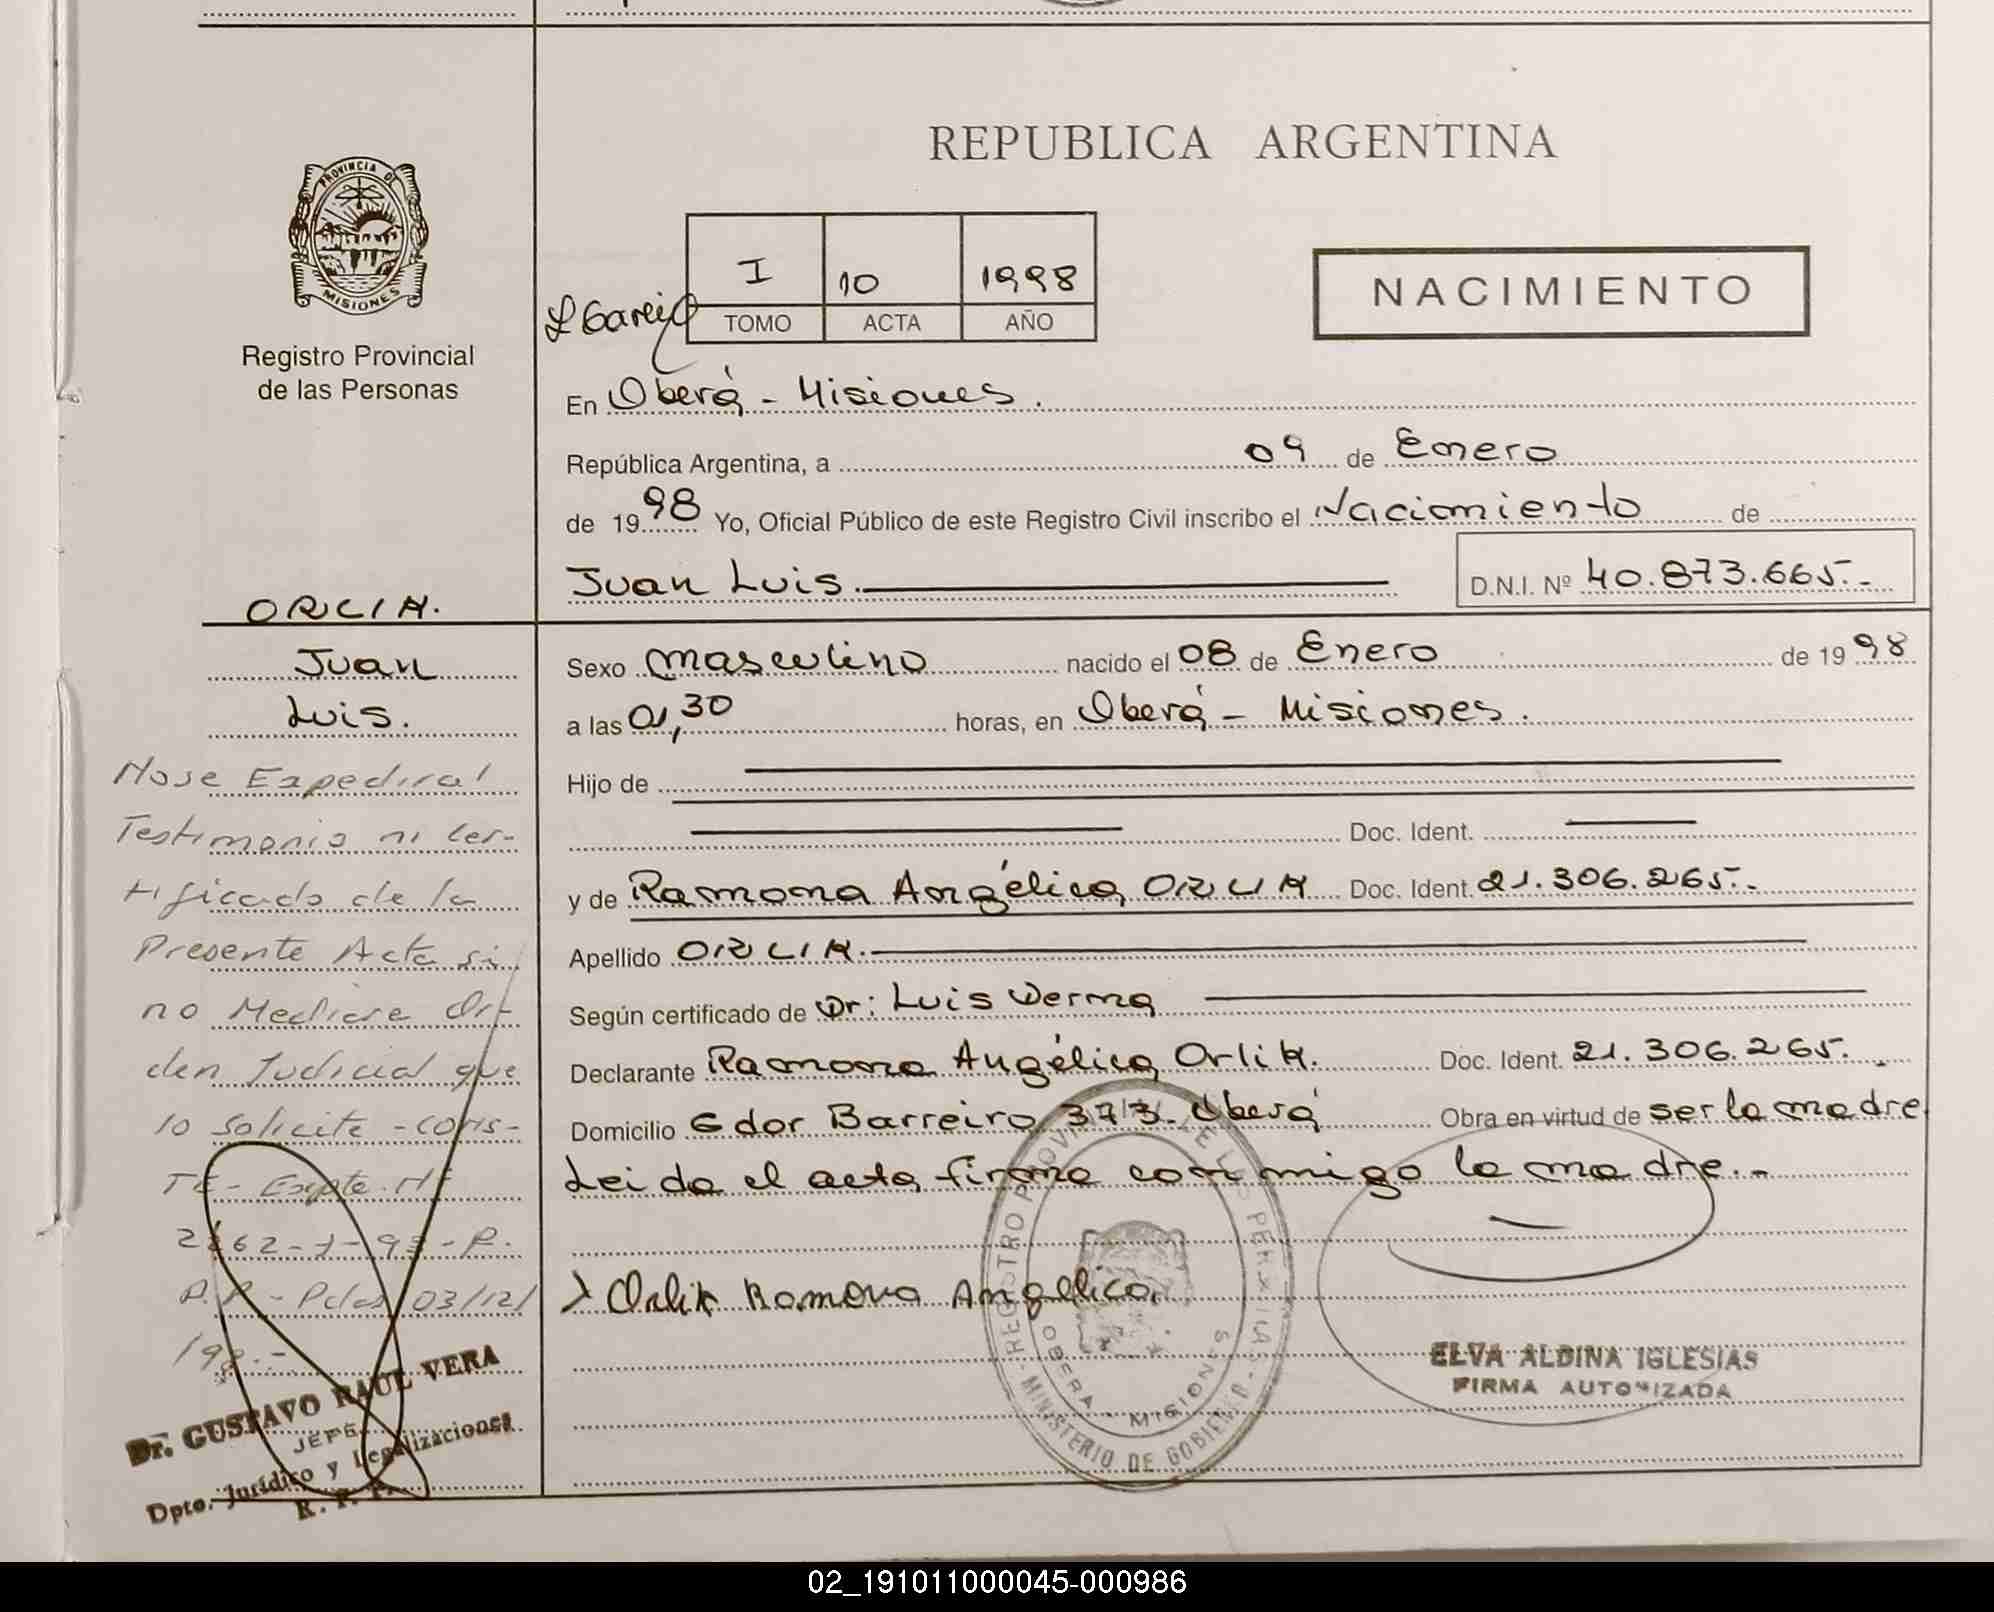 REPUBLICA ARGENTINA
PROVINCIA DE
MISIONES
Registro Provincial
de las Personas
I 10 1998
TOMO ACTA AÑO
NACIMIENTO
En Oberá - Misiones.
República Argentina, a 09 de Enero
de 1998 Yo, Oficial Público de este Registro Civil inscribo el Nacimiento de
Juan Luis. D.N.I. Nº 40.873.665.-
ORLIK.
Juan
Luis.
Sexo masculino nacido el 08 de Enero de 1998
a las 01,30 horas, en Oberá - Misiones.
Hijo de
Doc. Ident.
y de Ramona Angélica ORLIK Doc. Ident. 21.306.265.-
Apellido ORLIK.
Según certificado de Dr: Luis Derma
Declarante Ramona Angélica Orlik. Doc. Ident. 21.306.265.
Domicilio Gdor Barreiro 373. Oberá Obra en virtud de ser la madre
Leida el acta, firma conmigo la madre.-
Orlik Ramona Angelica
No se Expedira
Testimonio ni Cer-
tificado de la
Presente Acta si
no Mediare Or-
den Judicial que
lo solicite - cons-
TE - Expte. Nº
P. - Pdas 03/12/
198.-
Dr. GUSTAVO RAUL VERA
JEFE
Dpto. Jurídico y Legalizaciones
R. P. P.
REGISTRO PROVINCIAL DE LAS PERSONAS
MINISTERIO DE GOBIERNO
OBERA - MISIONES
ELVA ALDINA IGLESIAS
FIRMA AUTORIZADA
02_191011000045-000986